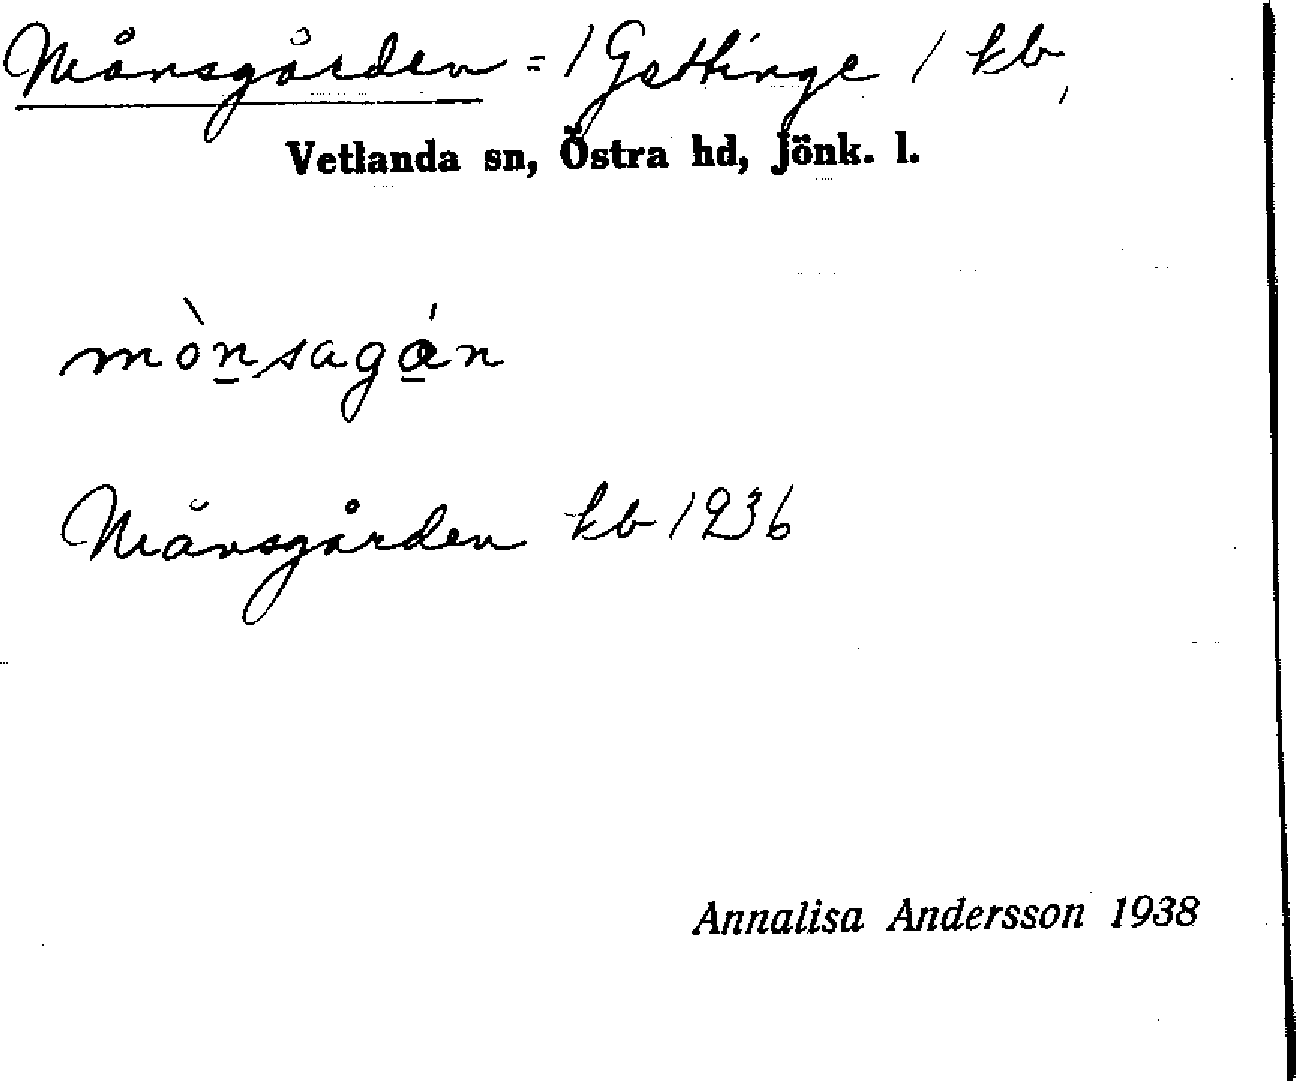 Månsgården = /Gettinge / kb,
Vetlanda sn, Östra hd, Jönk. l.
mònsagán
Månsgården kb 1936
Annalisa Andersson 1938